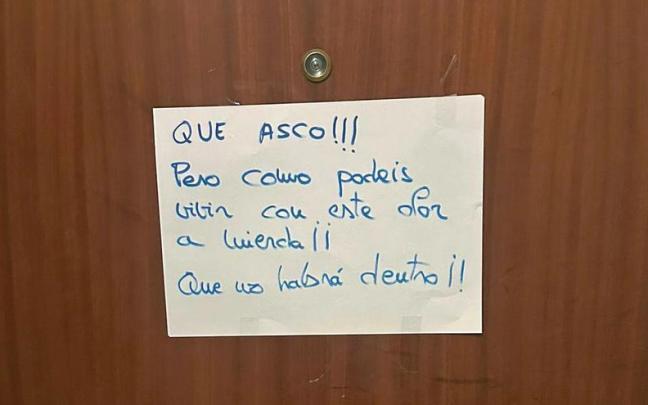 QUE ASCO!!!
Pero como podeis
vivir con este olor
a mierda!!
Que no habrá dentro!!